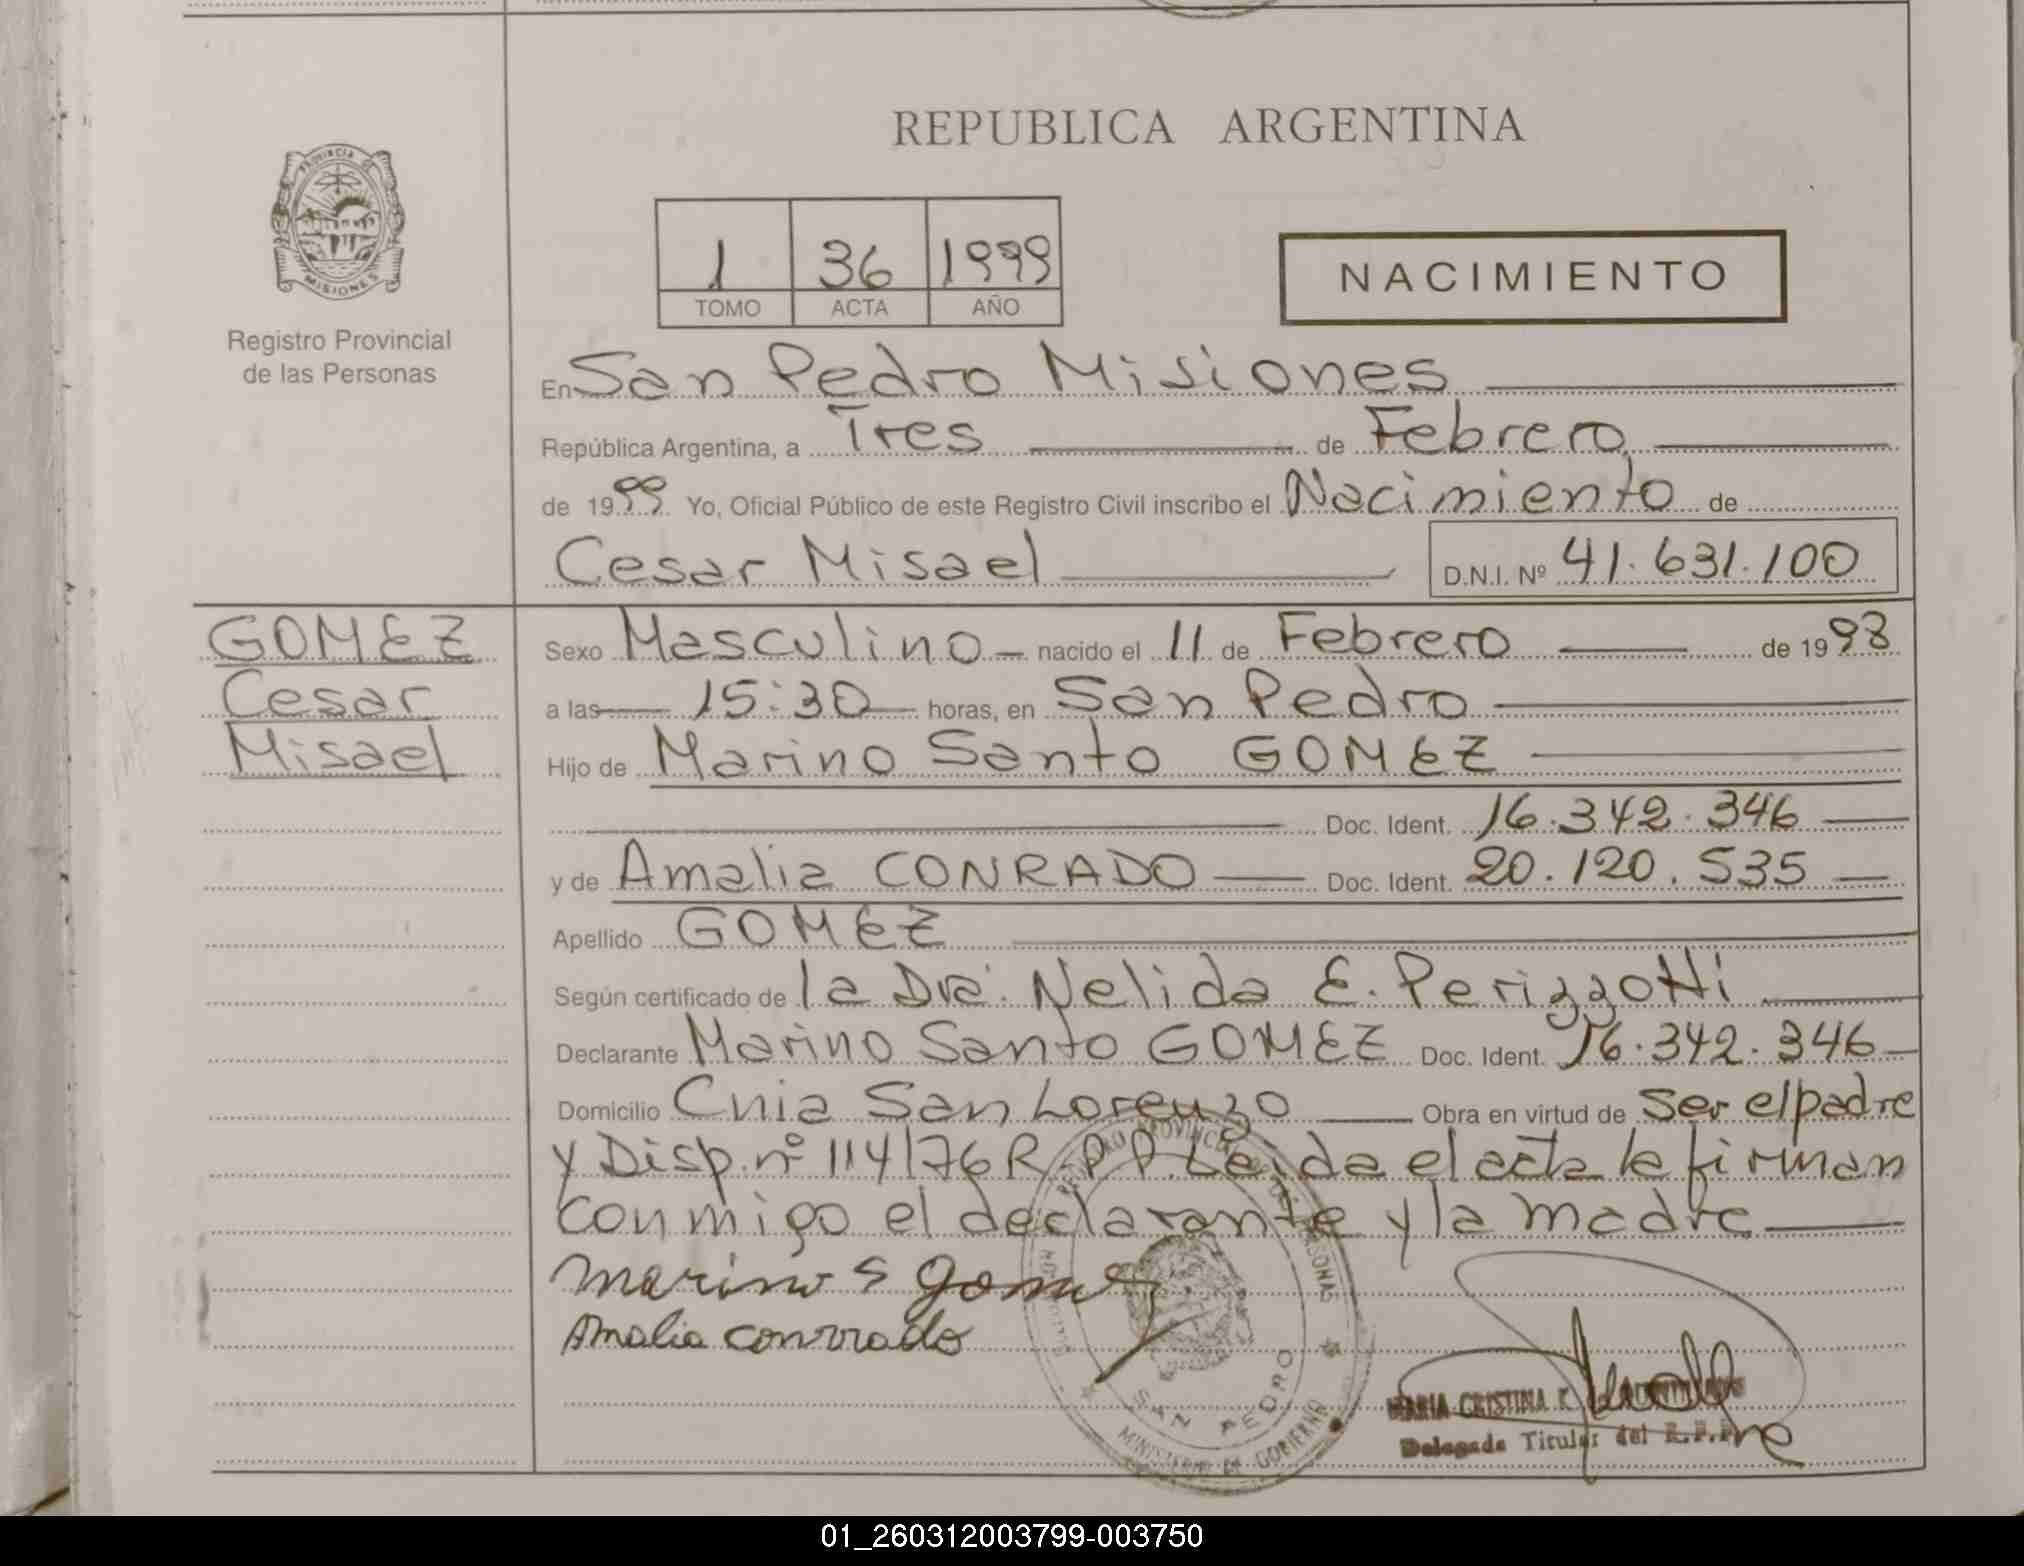 REPUBLICA ARGENTINA
PROVINCIA DE
MISIONES
Registro Provincial
de las Personas
1 36 1999
TOMO ACTA AÑO
NACIMIENTO
En San Pedro Misiones
República Argentina, a Tres de Febrero
de 1999 Yo, Oficial Público de este Registro Civil inscribo el Nacimiento de
Cesar Misael D.N.I. Nº 41.631.100
GOMEZ
Cesar
Misael
Sexo Masculino nacido el 11 de Febrero de 1998
a las 15:30 horas, en San Pedro
Hijo de Marino Santo GOMEZ
Doc. Ident. 16.342.346
y de Amalia CONRADO Doc. Ident. 20.120.535
Apellido GOMEZ
Según certificado de la Dra. Nelida E. Perizzotti
Declarante Marino Santo GOMEZ Doc. Ident. 16.342.346
Domicilio Cnia San Lorenzo Obra en virtud de ser el padre
y Disp. nº 114/76 R.P.P. Leida el acta la firman
conmigo el declarante y la madre
Marino S Gomez
Amalia conrrado
SAN PEDRO
MINISTERIO DE GOBIERNO
MARIA CRISTINA
Delegada Titular del R.P.P.
01_260312003799-003750